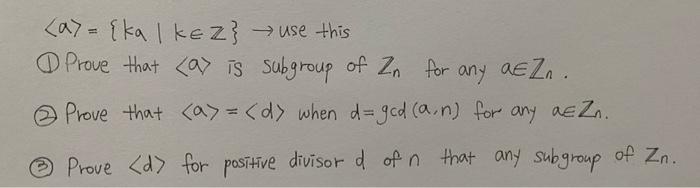 <a> = {ka | k∈Z} → use this
① Prove that <a> is subgroup of Zn for any a∈Zn.
② Prove that <a> = <d> when d=gcd(a,n) for any a∈Zn.
③ Prove <d> for positive divisor d of n that any subgroup of Zn.